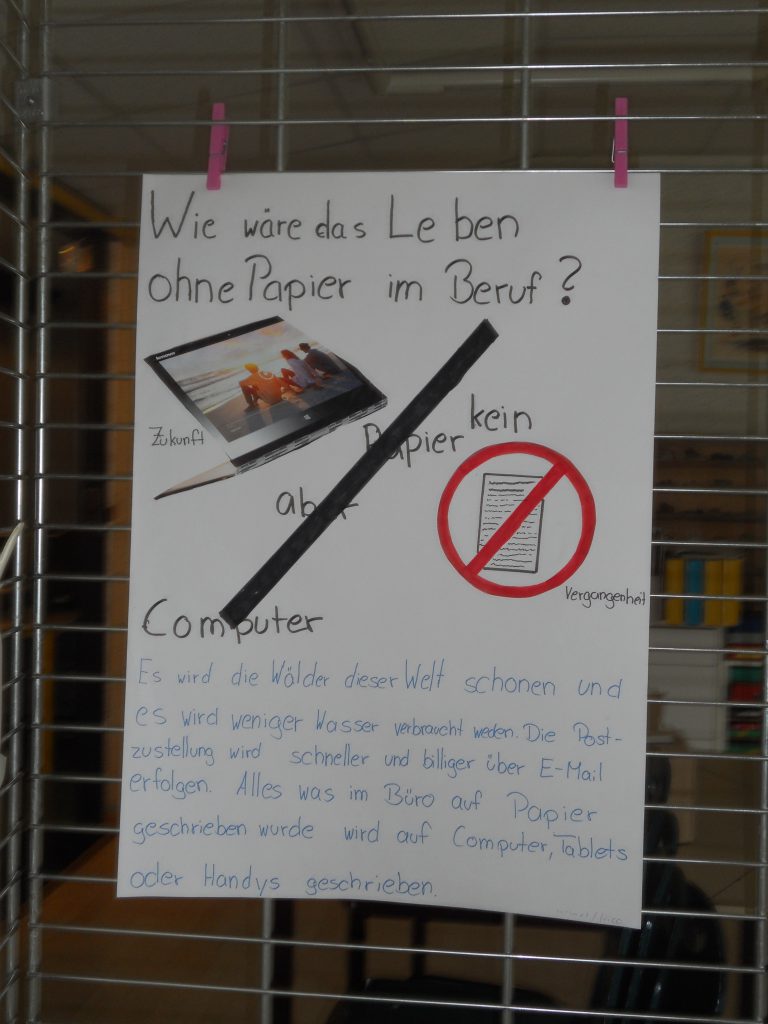 Wie wäre das Leben
ohne Papier im Beruf?
lenovo
Zukunft
kein
Papier
aber
Vergangenheit
Computer
Es wird die Wälder dieser Welt schonen und
es wird weniger Wasser verbraucht weden. Die Post-
zustellung wird schneller und billiger über E-Mail
erfolgen. Alles was im Büro auf Papier
geschrieben wurde wird auf Computer, Tablets
oder Handys geschrieben.